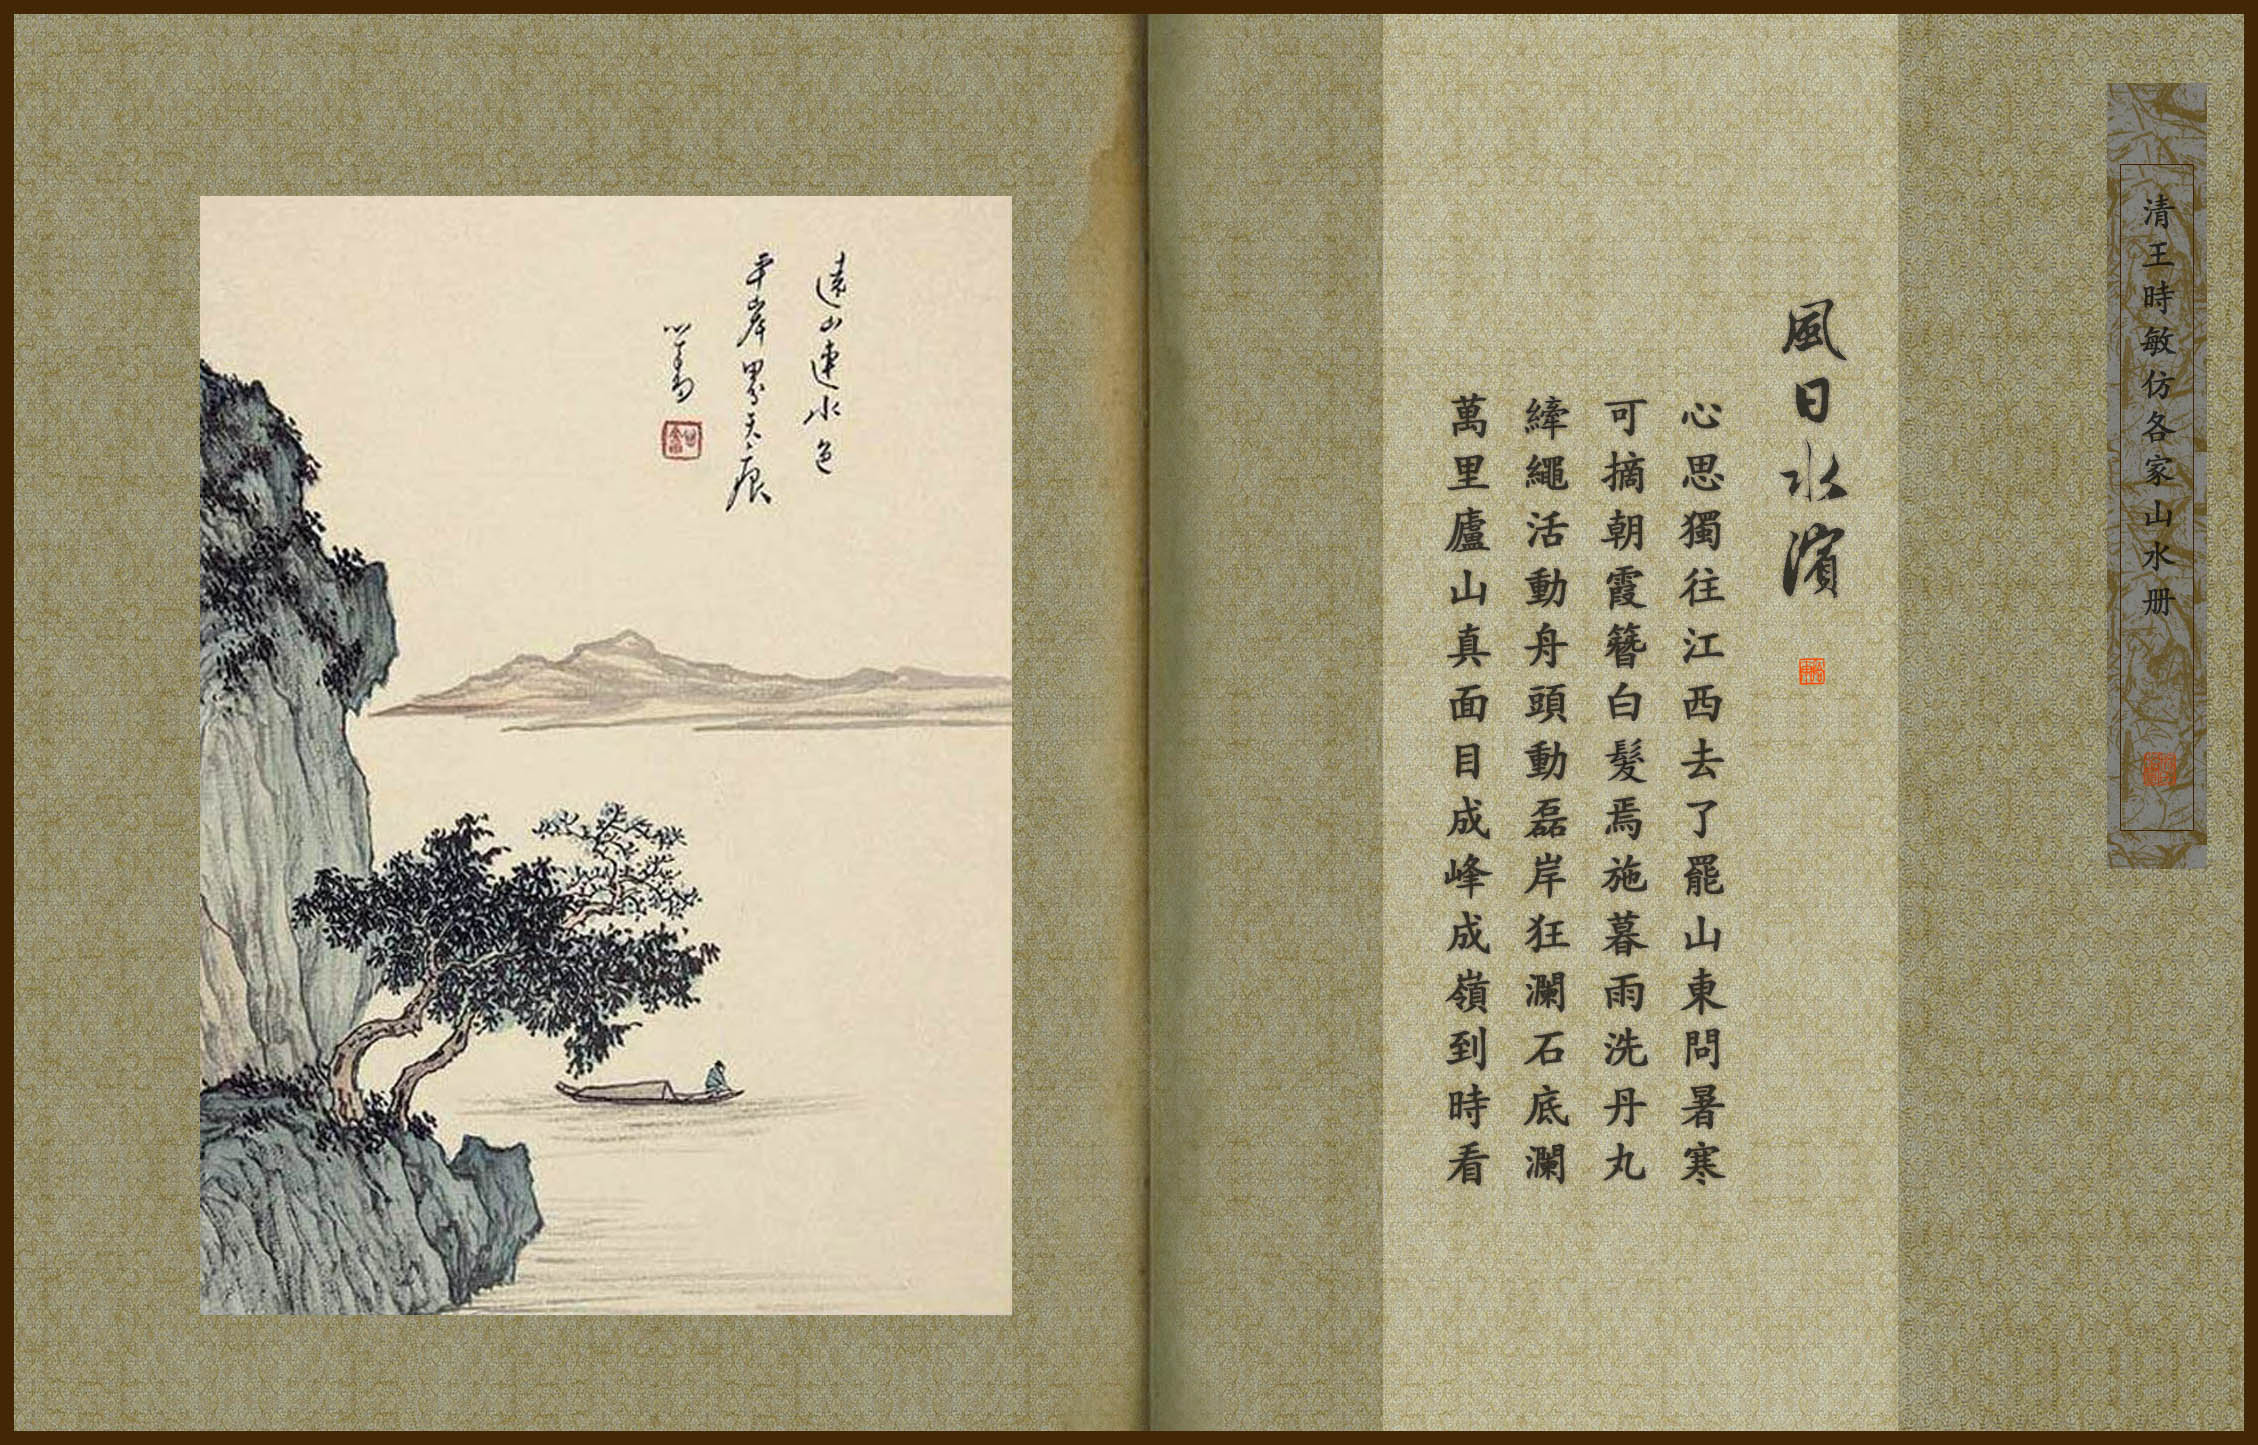 清王時敏仿各家山水册
風日水濱
心思獨往江西去了罷山東問暑寒
可摘朝霞簪白髮焉施暮雨洗丹丸
縴繩活動舟頭動磊岸狂瀾石底瀾
萬里廬山真面目成峰成嶺到時看
遠山連水色
平岸界天痕
心畬